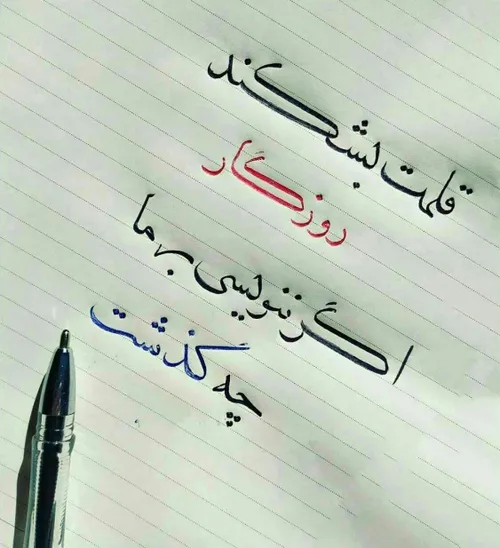 قلمت بشکند
روزگار
اگر ننویسی به ما
چه گذشت